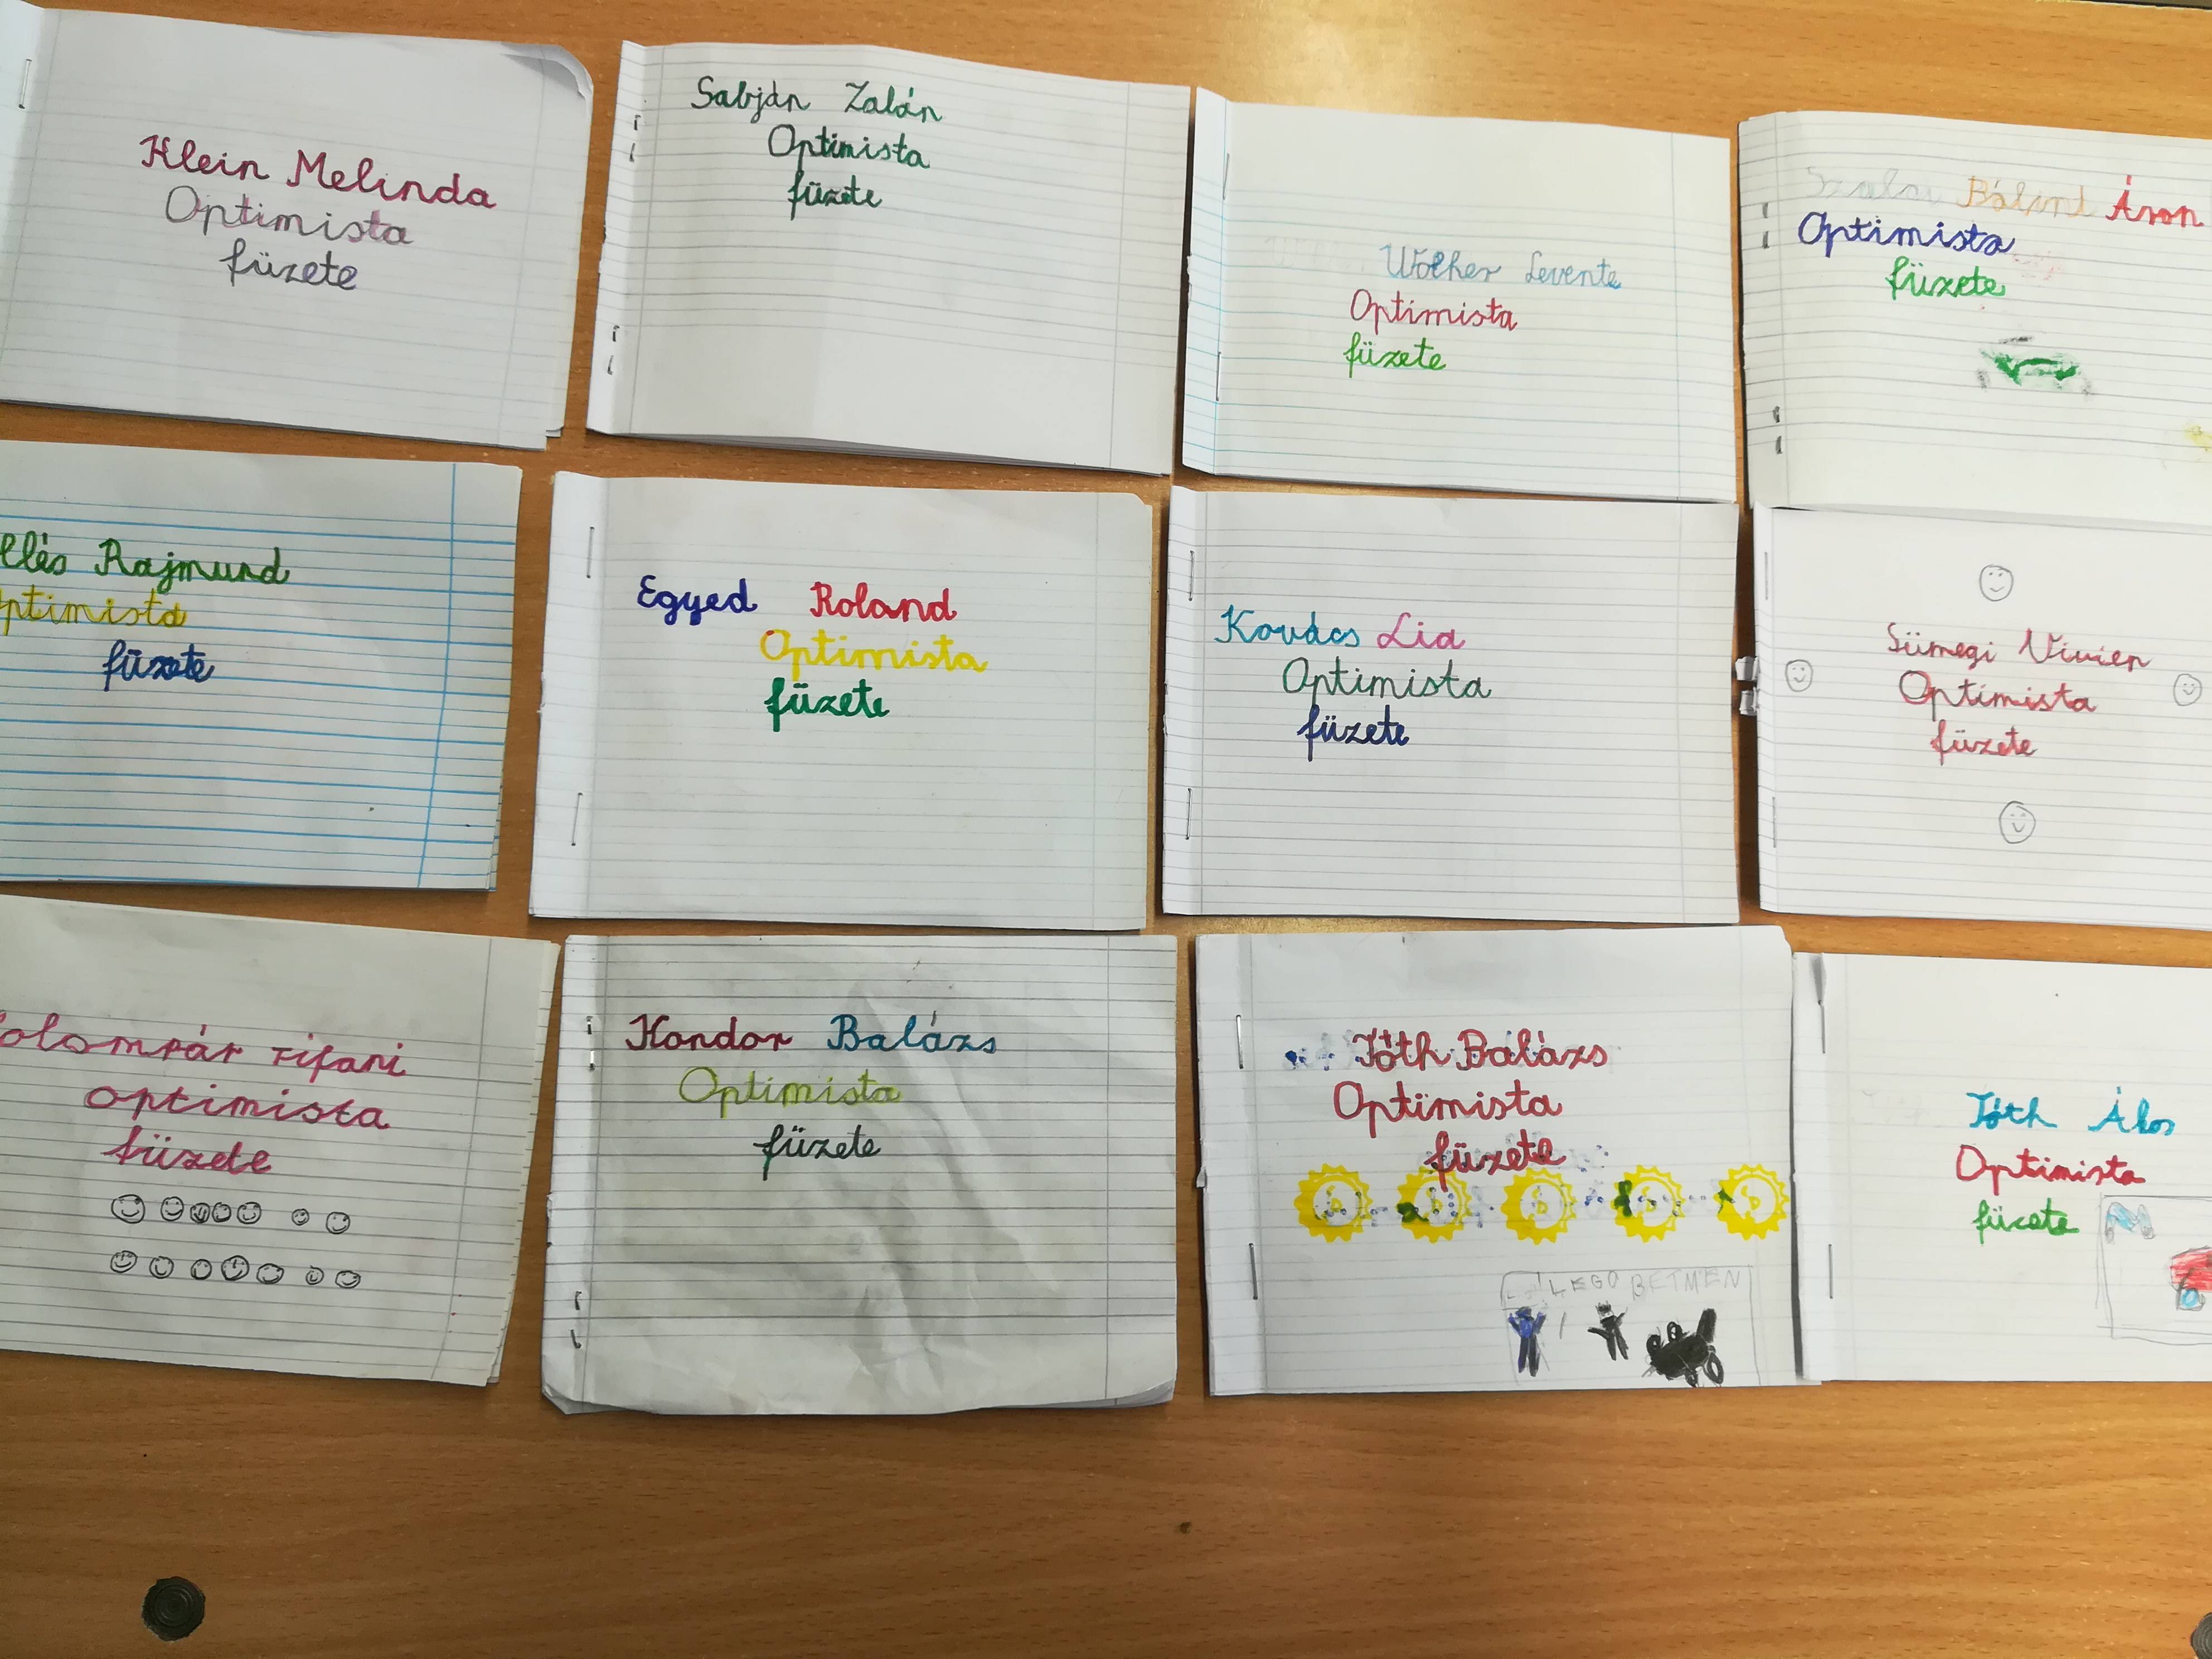 Klein Melinda
Optimista
füzete
Sabján Zalán
Optimista
füzete
Levente
Optimista
füzete
Szalai Bálint Áron
Optimista
füzete
llés Rajmund
ptimista
füzete
Egyed Roland
Optimista
füzete
Kovács Lia
Optimista
füzete
Sümegi Vivien
Optimista
füzete
olompár Tifani
optimista
füzete
Kondor Balázs
Optimista
füzete
Tóth Balázs
Optimista
füzete
LEGO BETMEN
Tóth Ákos
Optimista
füzete